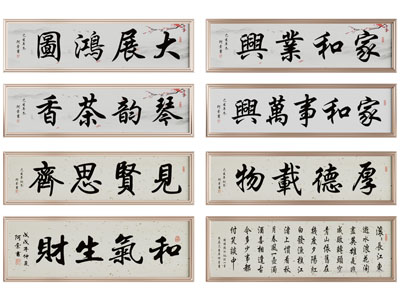 大展鴻圖
家和業興
琴韵茶香
家和萬事興
見賢思齊
厚德載物
和氣生財
戊戌年仲夏
滾〻長江東
逝水浪花淘
盡英雄是非
成敗轉頭空
青山依舊在
幾度夕陽紅
白發漁樵江
渚上慣看秋
月春風一壺
濁酒喜相逢古
今多少事都
付笑談中